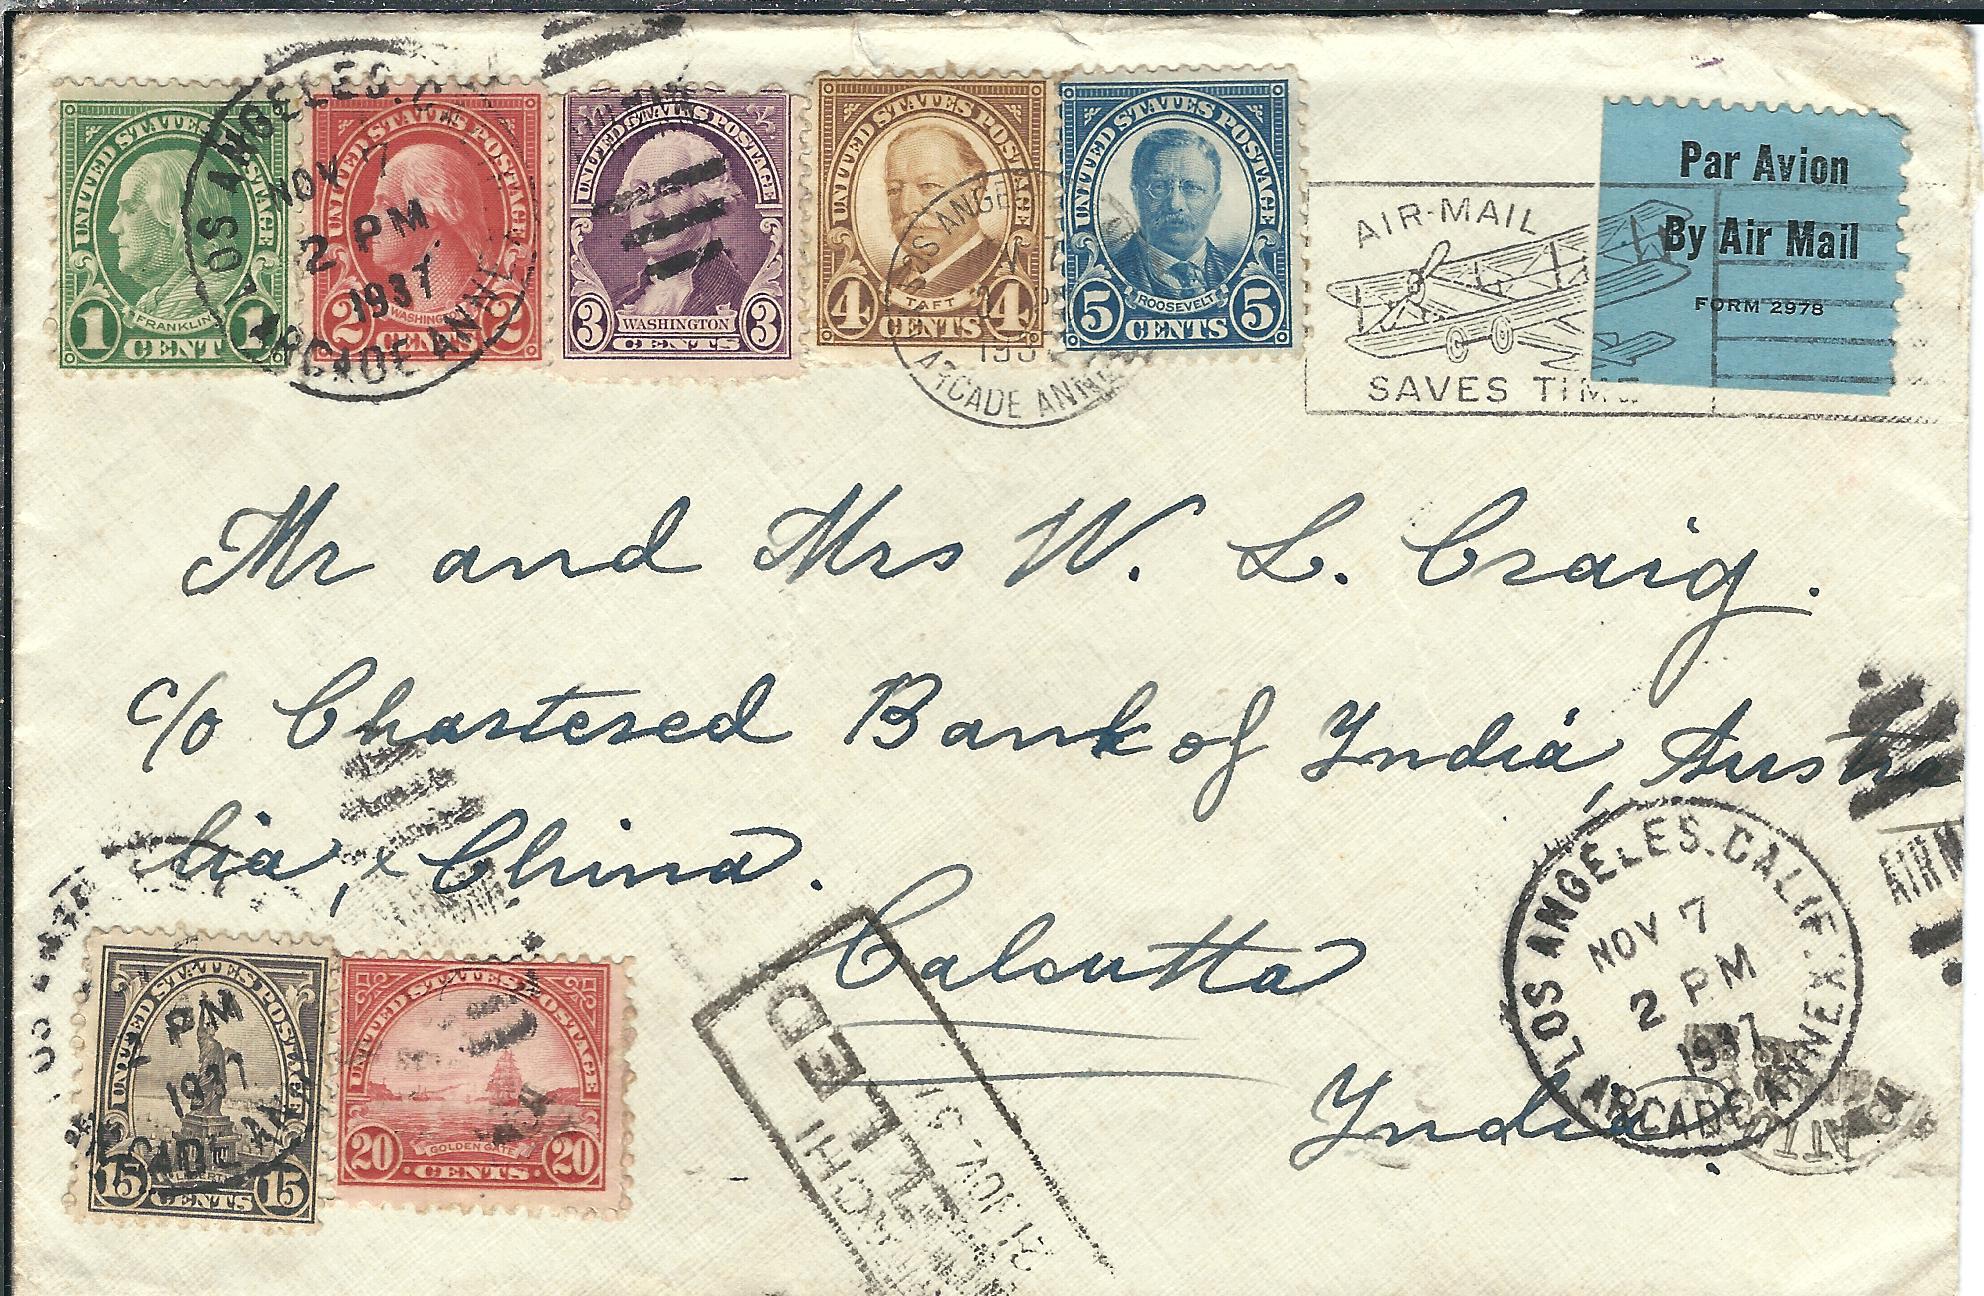 UNITED STATES POSTAGE
FRANKLIN
1 CENT 1
UNITED STATES POSTAGE
WASHINGTON
2 CENTS 2
UNITED STATES POSTAGE
WASHINGTON
3 CENTS 3
UNITED STATES POSTAGE
TAFT
4 CENTS 4
UNITED STATES POSTAGE
ROOSEVELT
5 CENTS 5
LOS ANGELES.
NOV 7
2 PM
1937
ARCADE ANNEX
LOS ANGELES
ARCADE ANNEX
AIR-MAIL
SAVES TIME
Par Avion
By Air Mail
FORM 2978
Mr and Mrs W. L. Craig.
c/o Chartered Bank of India, Austra
lia, & China.
Calcutta
India.
UNITED STATES POSTAGE
15 CENTS 15
PM
1937
UNITED STATES POSTAGE
GOLDEN GATE
20 CENTS 20
21 NOV. 37
LOS ANGELES. CALIF.
NOV 7
2 PM
1937
ARCADE ANNEX
AIR M